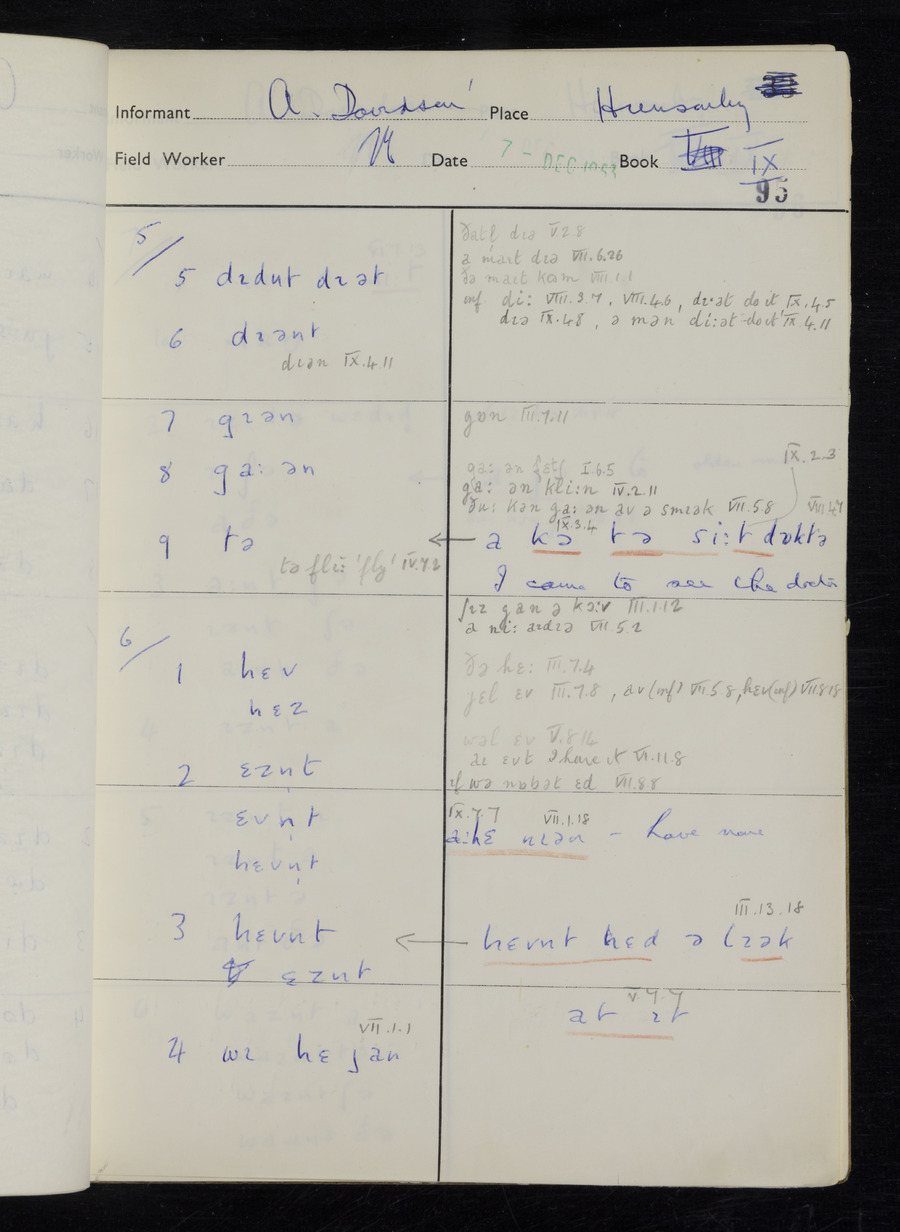 Informant A. Davidson Place
Field Worker Date 7 - DEC Book IX
95
5/
5 dɪdnt dɪət
ðatl dɪə V.2.8
a maɪt dɪə VII.6.26
ðə maɪt kəm VIII.1.1
inf di: VIII.3.7, VIII.4.6, dɪ·ət do it IX.4.5
dɪə IX.4.8, ə mən di:ət do it IX.4.11
6 dɪənt
dɪən IX.4.11
7 gɪən
gɒn III.7.11
8 ga:ən
IX.2.3
ga: ən fɛtʃ I.6.5
ga: ən kli:n IV.2.11
ðu: kən ga:ən av ə smɪək VII.5.8 VIII.4.7
IX.3.4
9 tə ← a kə tə si:t dɒktə
tə fli: 'fly' IV.7.2
I came to see the doctor
gan ə kɔ:v III.1.12
a ni: aɪdɪə VII.5.2
6/
1 hɛv
ðə hɛ: III.7.4
jel ɛv III.7.8, av (inf) VII.5.8, hɛv (inf) VII.8.18
hɛz
wəl ɛv V.8.14
aɪ ɛvt I have it VI.11.8
2 ɛzn̩t
if wə nɒbət ɛd VII.8.8
ɛvn̩t
IX.7.7 VII.1.18
a:hɛ nɪən - have none
hɛvn̩t
III.13.18
3 hɛvnt ← hɛvnt hɛd ə lɪək
ɛznt
V.7.7
at ɪt
VII.1.1
4 wɪ hɛ jan